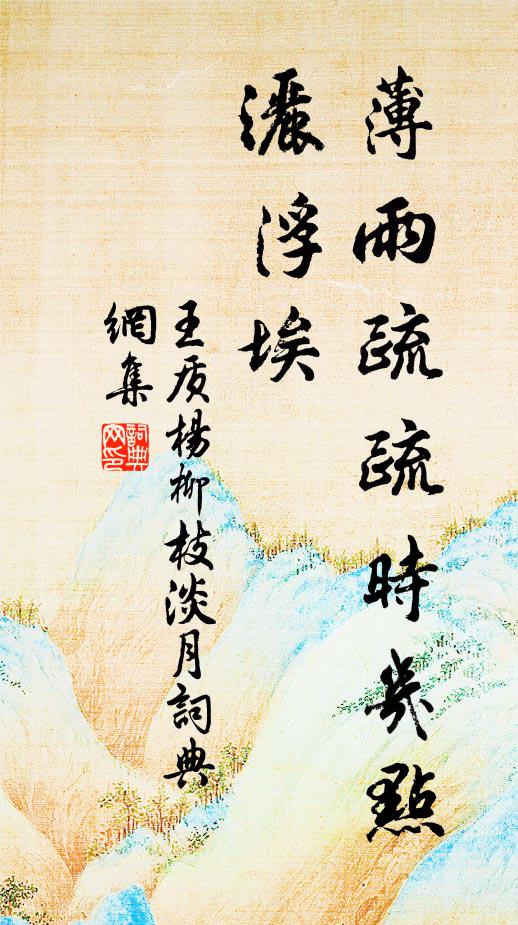 薄雨疏疏時幾點
灑浮埃
王质楊柳枝淡月詞典
網集
詞典
网印